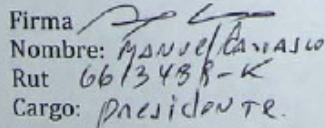 Firma
Nombre: Manuel Carrasco
Rut 6613488-K
Cargo: Presidente.